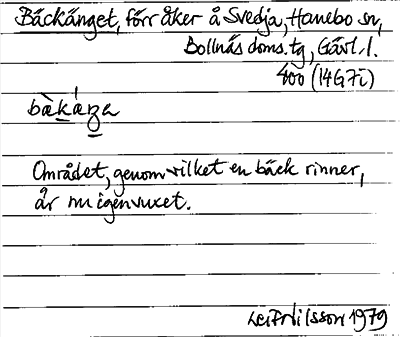 Bäckänget, förr åker å Svedja, Hanebo sn,
Bollnäs doms.tg, Gävl. l.
400 (14G7i)
bàkáŋa
Området, genom vilket en bäck rinner,
är nu igenvuxet.
Leif Nilsson 1979